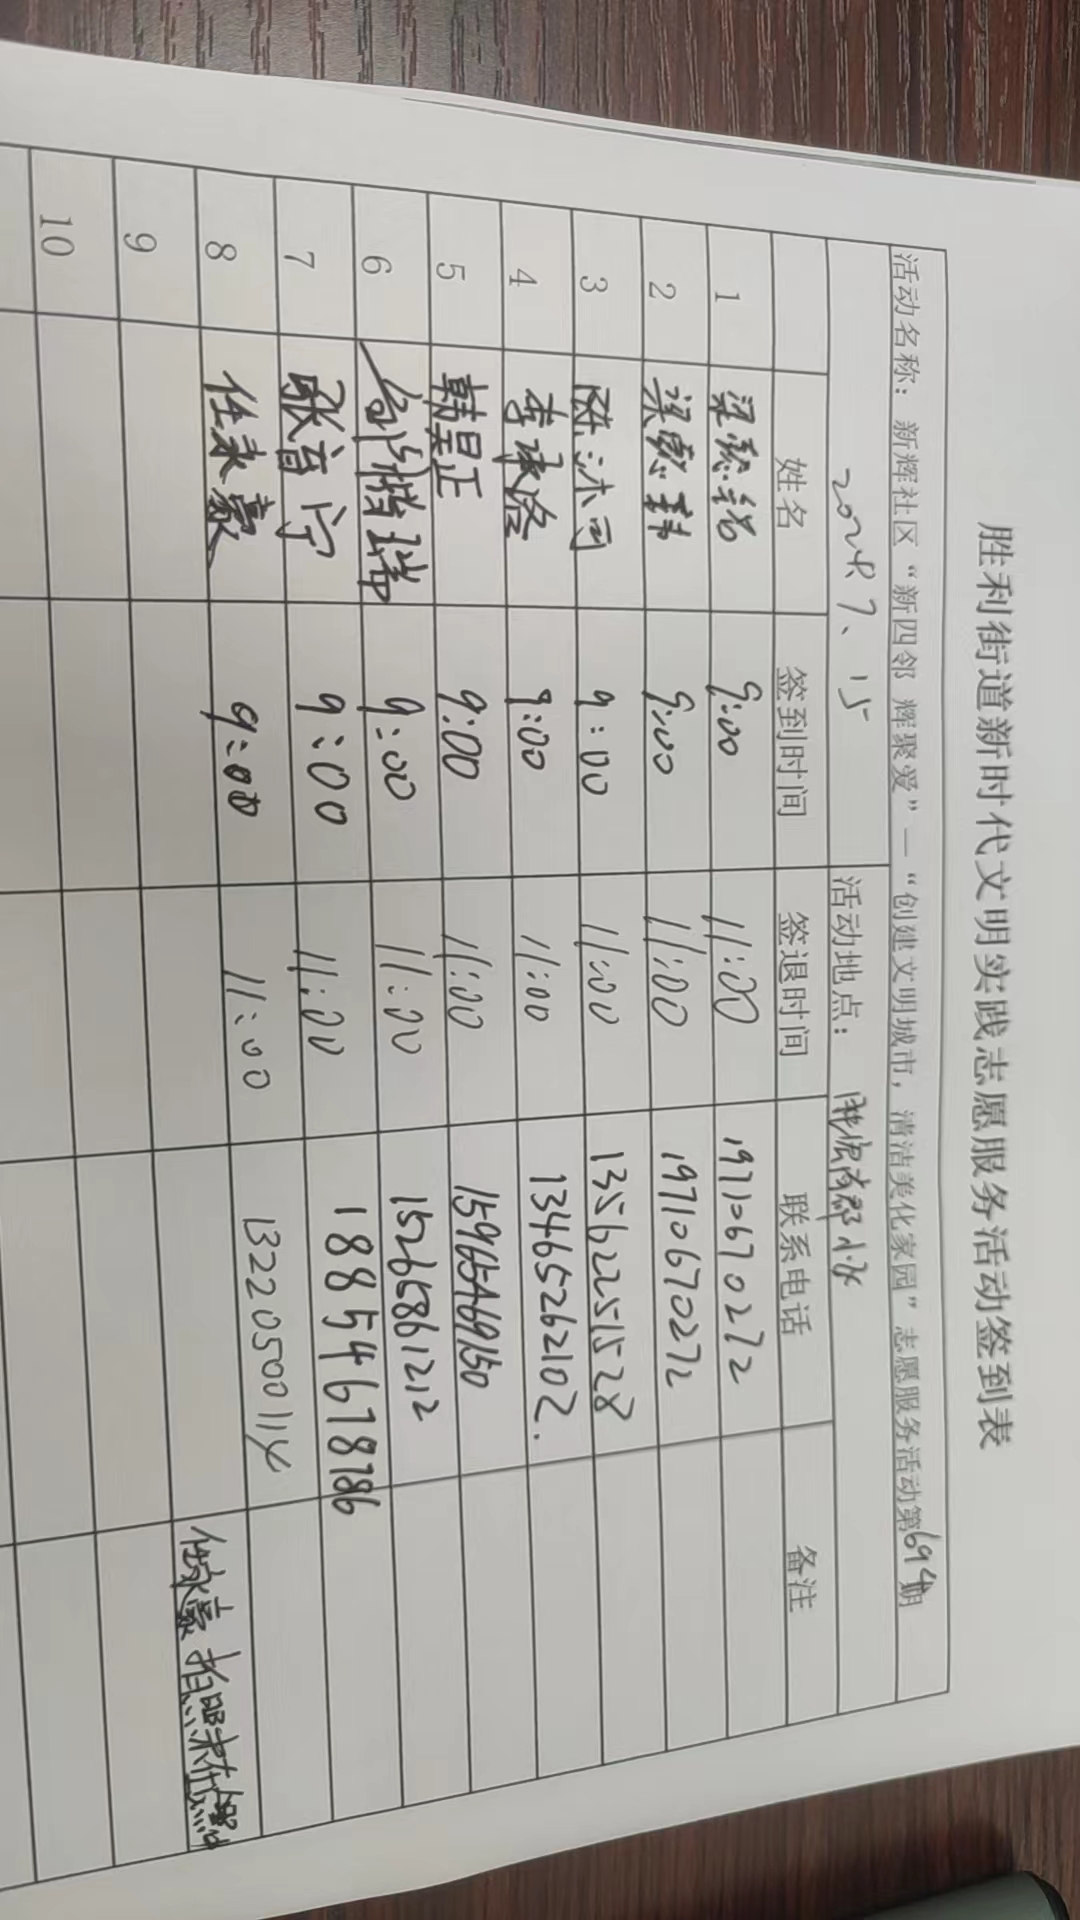 胜利街道新时代文明实践志愿服务活动签到表
活动名称：新辉社区“新四邻 辉聚爱”—“创建文明城市，清洁美化家园”志愿服务活动第694期
2024.7、15 活动地点：小区
姓名 签到时间 签退时间 联系电话 备注
1 梁 9:00 11:00 19710670272
2 梁 9:00 11:00 19710670272
3 陈沐 9:00 11:00 13562251528
4 李承 9:00 11:00 13465262102.
5 韩昊正 9:00 11:00 15965469150
6 楷瑞 9:00 11:00 15265861212
7 张育宁 9:00 11:00 18854678786
8 任永豪 9:00 11:00 13220500114 任永豪 拍照未在照中
9
10